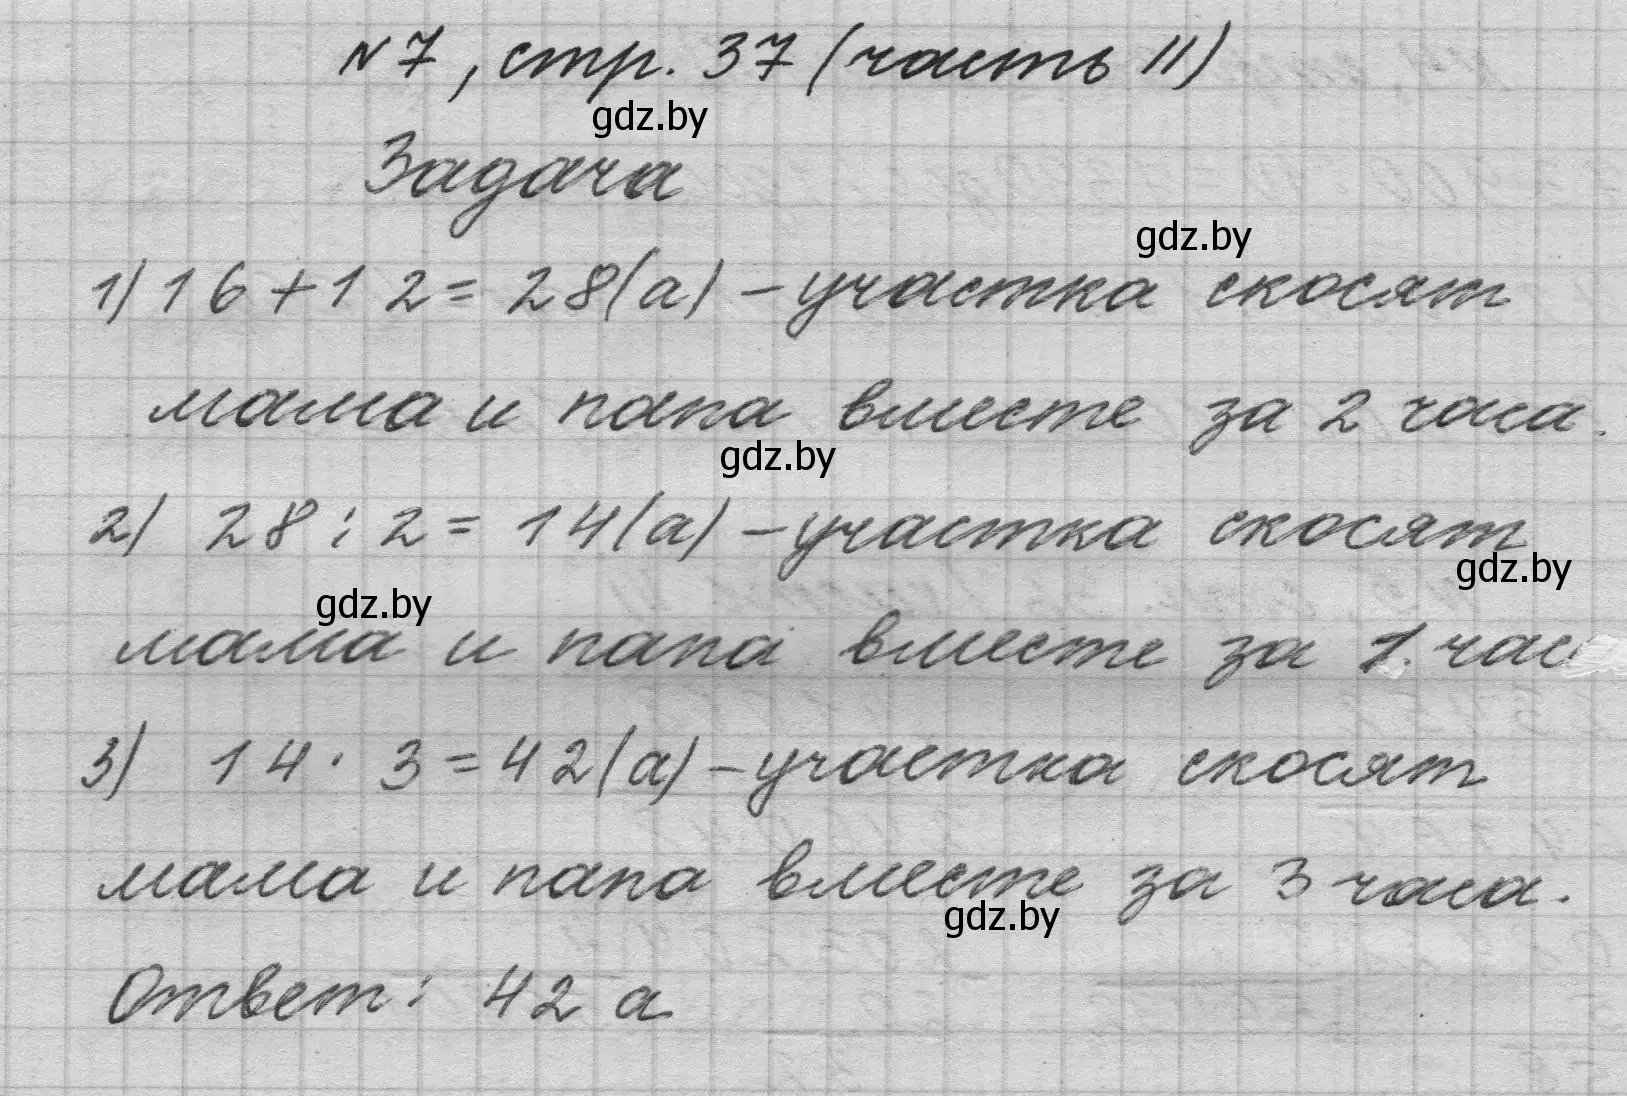 №7, стр. 37 (часть II)
gdz.by
Задача
gdz.by
1) 16 + 12 = 28 (а) – участка скосят
мама и папа вместе за 2 часа.
gdz.by
2) 28 : 2 = 14 (а) – участка скосят
gdz.by
gdz.by
мама и папа вместе за 1 час
3) 14 · 3 = 42 (а) – участка скосят
мама и папа вместе за 3 часа.
gdz.by
Ответ: 42 а